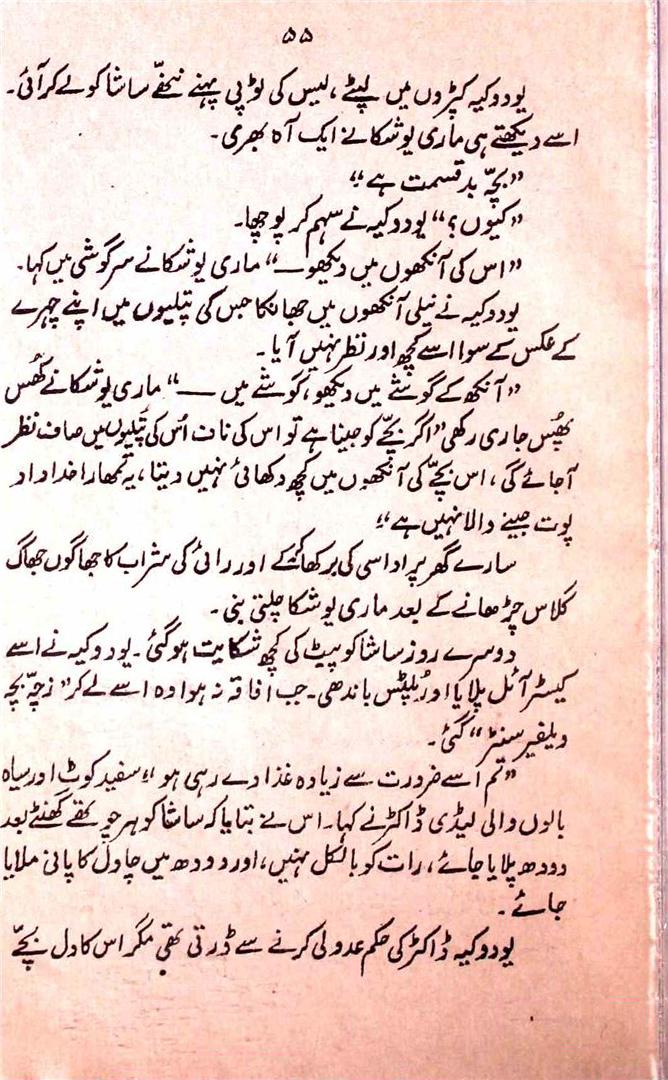 ۵۵
یودوکیہ کپڑوں میں لپٹے، لیس کی ٹوپی پہنے ننھے ساشا کو لے کر آئی۔
اسے دیکھتے ہی ماری یوشکا نے ایک آہ بھری۔
”بچّہ بدقسمت ہے“
”کیوں؟“ یودوکیہ نے سہم کر پوچھا۔
”اس کی آنکھوں میں دیکھو—“ ماری یوشکا نے سرگوشی میں کہا۔
یودوکیہ نے نیلی آنکھوں میں جھانکا جس کی پتلیوں میں اپنے چہرے
کے عکس کے سوا اسے کچھ اور نظر نہیں آیا۔
”آنکھ کے گوشے میں دیکھو، گوشے میں —“ ماری یوشکا نے گھُس
پھُس جاری رکھی ”اگر بچّے کو جینا ہے تو اس کی ناف اُس کی پُتلیوں میں صاف نظر
آجائے گی، اس بچّے کی آنکھوں میں کچھ دکھائی نہیں دیتا، یہ تمھارا خداداد
پوت جینے والا نہیں ہے“
سارے گھر پر اداسی کی برکھا کرکے اور رائی کی شراب کا جھاگوں جھاگ
گلاس چڑھانے کے بعد ماری یوشکا چلتی بنی۔
دوسرے روز ساشا کو پیٹ کی کچھ شکایت ہوگئی۔ یودوکیہ نے اسے
کیسٹر آئل پلایا اور پُلپٹس باندھی۔ جب افاقہ نہ ہوا وہ اسے لے کر ”زچّہ بچہ
ویلفیر سنٹر“ گئی۔
”تم اسے ضرورت سے زیادہ غذا دے رہی ہو“ سفید کوٹ اور سیاہ
بالوں والی لیڈی ڈاکٹر نے کہا۔ اس نے بتایا کہ ساشا کو ہر چوتھے گھنٹے بعد
دودھ پلایا جائے، رات کو بالکل نہیں، اور دودھ میں چاول کا پانی ملایا
جائے۔
یودوکیہ ڈاکٹر کی حکم عدولی کرنے سے ڈرتی تھی مگر اس کا دل بچّے